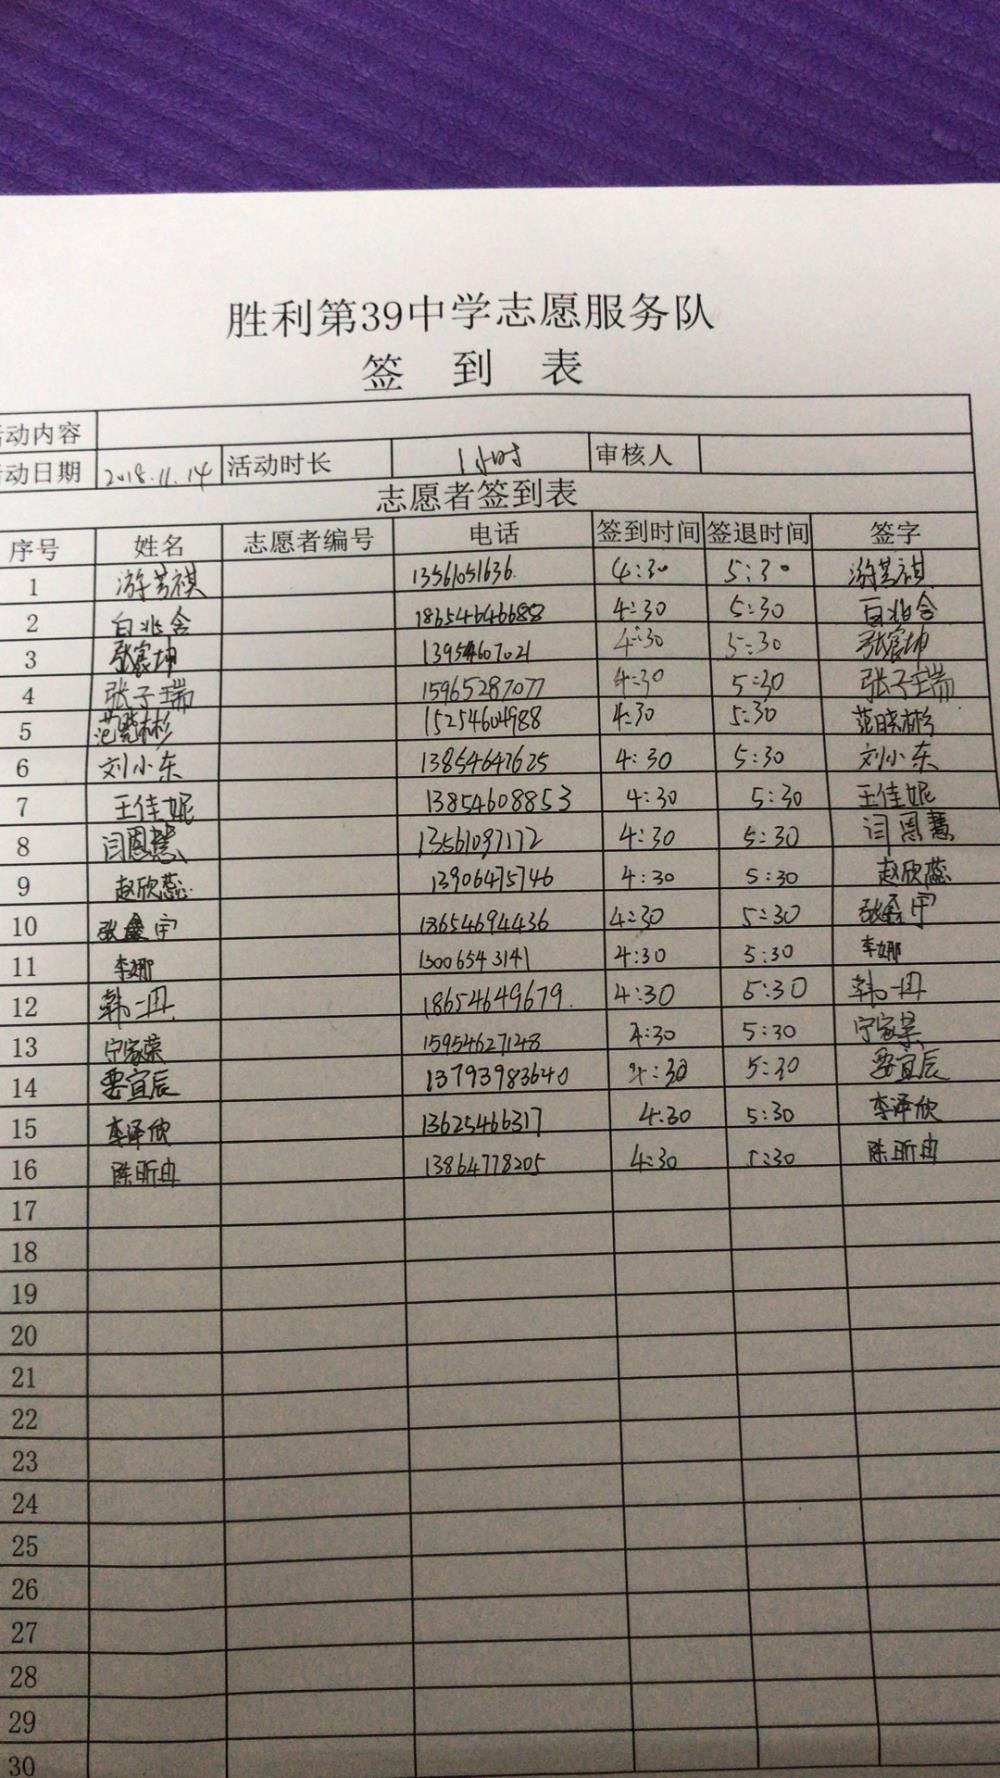 胜利第39中学志愿服务队
签 到 表
活动内容
活动日期 2018.11.14 活动时长 1小时 审核人
志愿者签到表
序号 姓名 志愿者编号 电话 签到时间 签退时间 签字
1 游芳祺 13561051636. 4:30 5:30 游芳祺
2 白兆含 18654646688 4:30 5:30 白兆含
3 张宸坤 13954607021 4:30 5:30 张宸坤
4 张子瑞 15965287077 4:30 5:30 张子瑞
5 范晓彬 15254604988 4:30 5:30 范晓彬
6 刘小东 13854647625 4:30 5:30 刘小东
7 王佳妮 13854608853 4:30 5:30 王佳妮
8 闫恩慧 13561097172 4:30 5:30 闫恩慧
9 赵欣蕊 13906475746 4:30 5:30 赵欣蕊
10 张鑫宇 18654694436 4:30 5:30 张鑫宇
11 李娜 13006543141 4:30 5:30 李娜
12 韩一冉 18654649679. 4:30 5:30 韩一冉
13 宁家荣 15954627148 4:30 5:30 宁家荣
14 宜辰 13793983640 4:30 5:30 宜辰
15 李泽欣 13625466317 4:30 5:30 李泽欣
16 陈昕冉 13864778205 4:30 5:30 陈昕冉
17
18
19
20
21
22
23
24
25
26
27
28
29
30